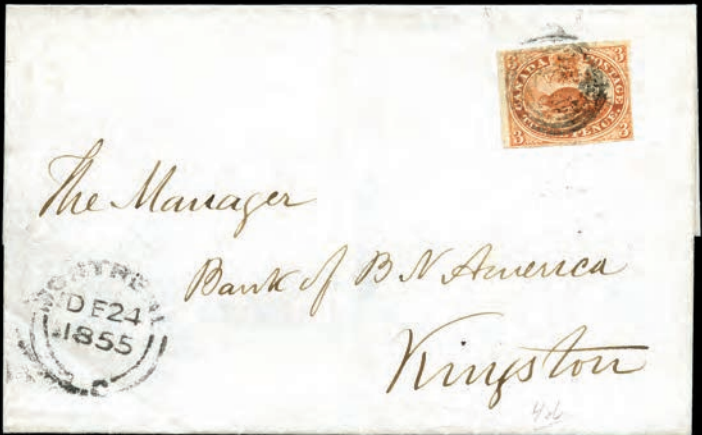 3 CANADA POSTAGE 3
3 PENCE 3
The Manager
Bank of B N America
Kingston
MONTREAL
DE 24
1855
C